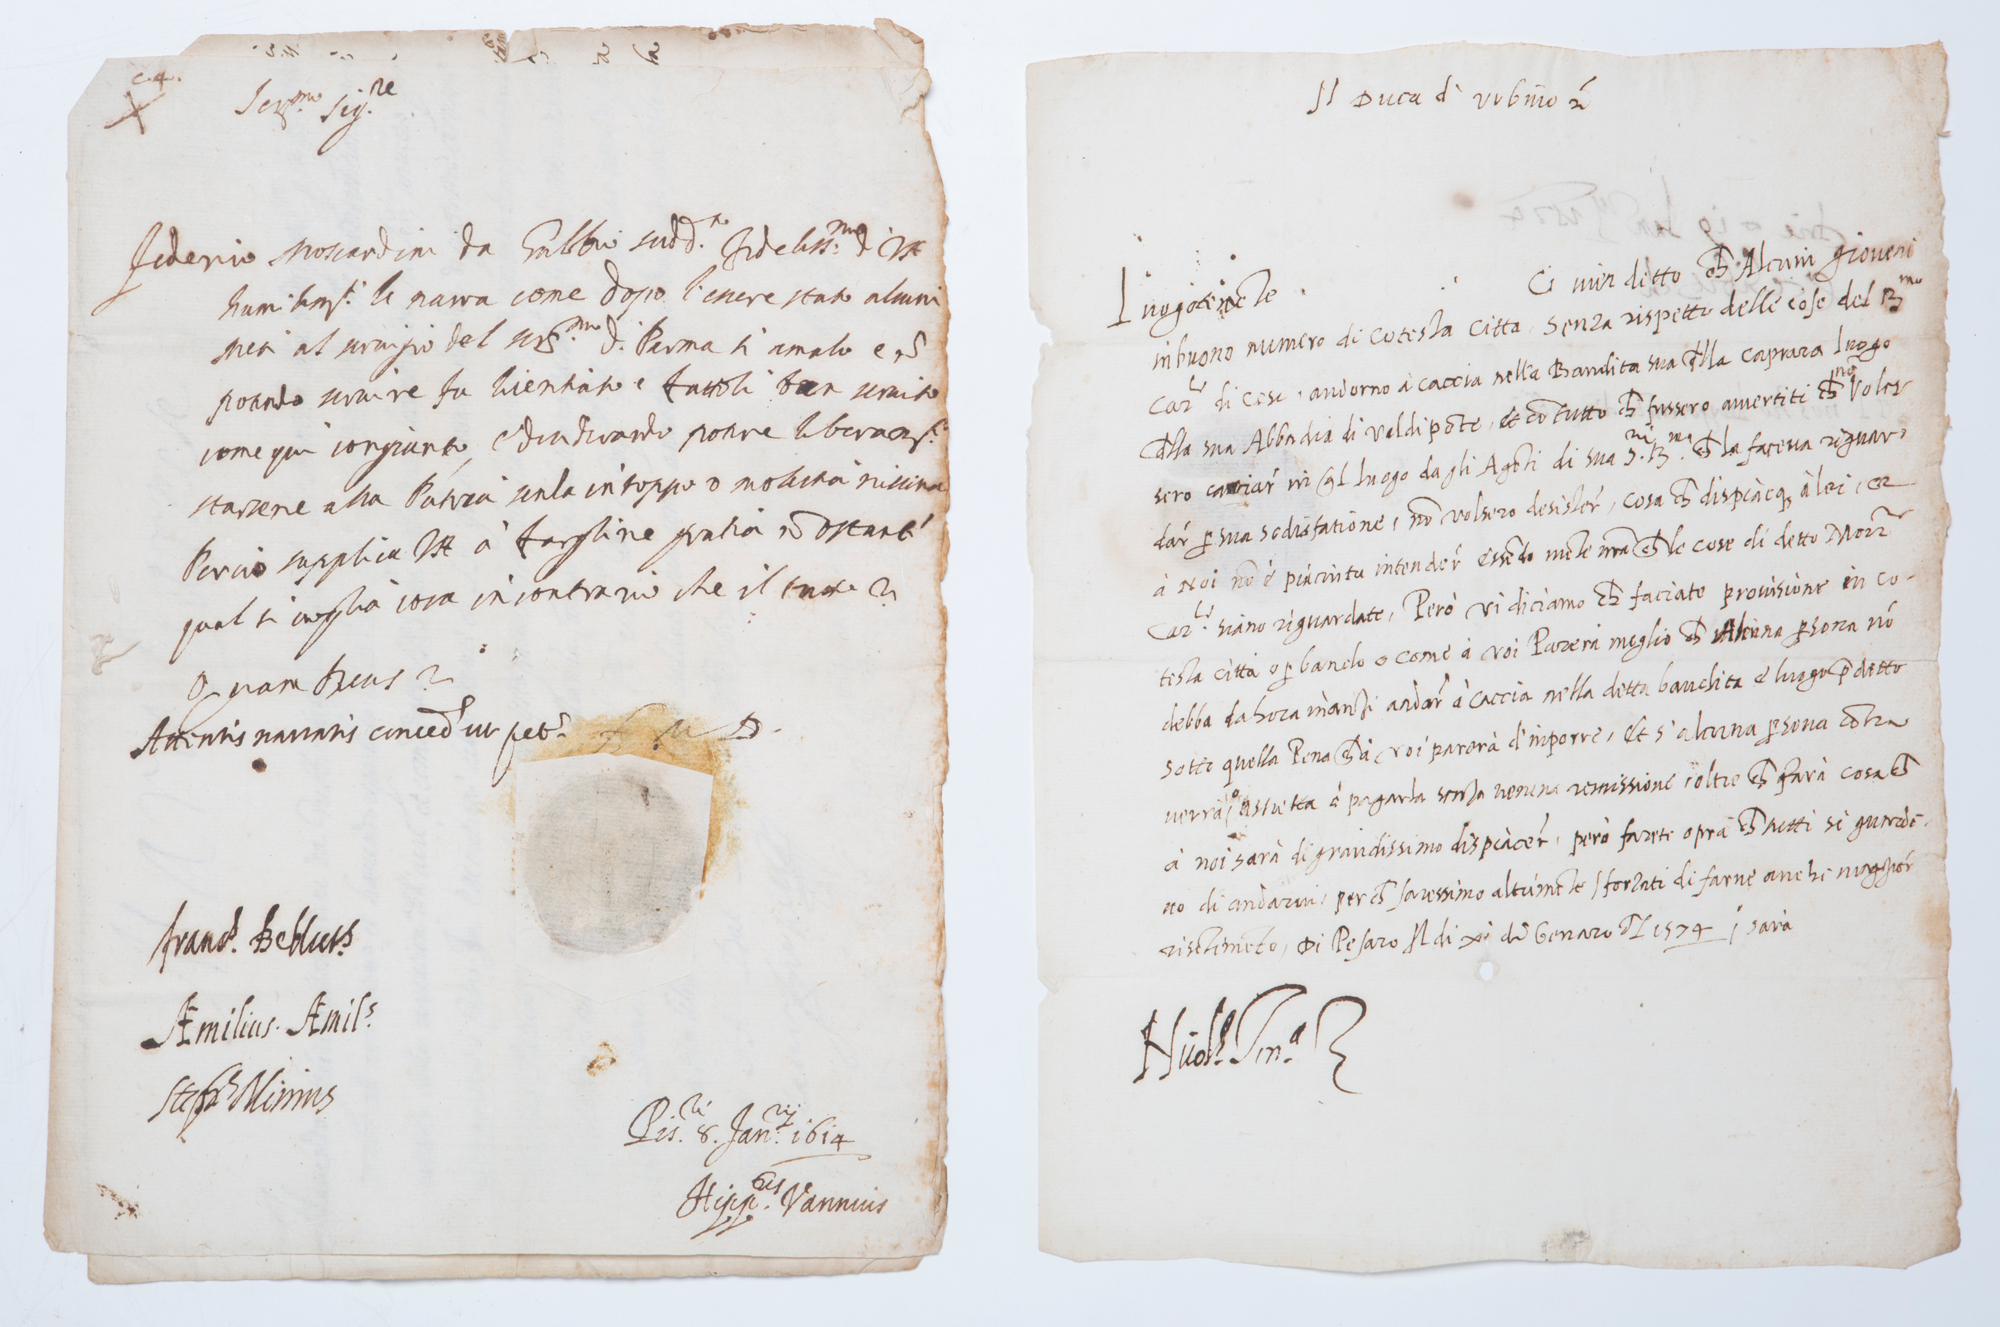 c. 4.
Ser.mo Sig.re
Federico Moscardini da Gubbio sudd.to fideliss.mo di VA
humilm.te le narra come dopo l'essere stato alcuni
mesi al servitio del ser.mo di Parma si amalò e nō
potendo servire fu licentiato e fattoli ben servito
come qui congiunto, e desiderando potere liberam.te
starsene alla Patria senza intoppo o molestia nissuna
Perciò supplica VA à fargline gratia nō ostante
qual si voglia cosa in contrario che il tutto
Quam Deus
Attentis narratis conced.r ut pet.r F. M. D.
Franc.s Bellutus
Æmilius Æmil.s
Steph.s Minius
Pis.ri 8. Jan.rij 1614
Hipp.tus Vannius
Il Duca di Urbino
Luogotenēte Ci vien ditto chē Alcuni gioveni
in buono numero di cotesta Citta, senza rispetto delle cose del R.mo
Car.l di Cese, andorno à caccia nella Bandita sua della Caprara luogo
della sua Abbadia di valdiponte, et cō tutto chē fussero avertiti chē nō voles-
sero cacciar in ql luogo dagli Agēti di sua S. R.ma chē la faceva riguar-
dar p sua sodisfatione, nō volsero desister, cosa chē dispiacq à lei, et
à Noi nō è piaciuta intender essēdo mēte nrā chē le cose di detto Mōr
Car.l siano riguardate, Però vi diciamo chē faciate provisione in co-
testa città o p bando o come à voi Parerà meglio chē Alcuna psona nō
debba da hora inanzi andar à caccia nella detta bandita e luogo pdetto
sotto quella Pena chē à voi parerà d'inporre, Et s'alcuna psona cōtra
verrà, astretta à pagarla senza neruna remissione, oltre chē farà cosa chē
à noi sarà di grandissimo dispiacer, però farete opra chē tutti si guardi-
no di andarvi, perchē saressimo altrimēte sforzati di farne anche maggior
risētimēto, Di Pesaro Il di xi di Genaro 1574 sarà